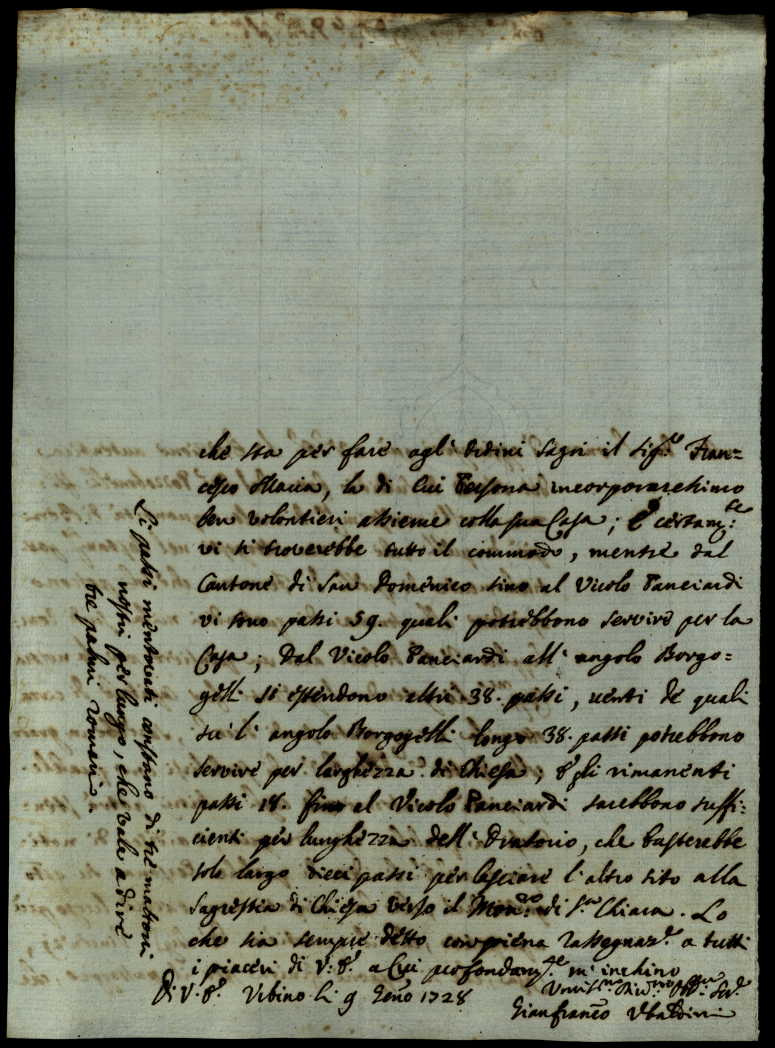 che sta per fare agl' Ordini Sagri il Sig.re Fran=
cesco Maria, la di Cui Persona incorporareḣimo
ben volontieri assieme colla sua Casa; E certam.te:
vi si troverebbe tutto il commodo, mentre dal
Cantone di San Domenico sino al Vicolo Panciardi
vi sono passi 59. quali potrebbono servire per la
Casa; Dal Vicolo Panciardi all' angolo Borgo=
gelli si estendono altri 38. passi, venti de quali
su l' angolo Borgogelli longo 38. passi potrebbono
servire per larghezza di Chiesa; e gli rimanenti
passi 18. fino al Vicolo Panciardi sarebbono suffi=
cienti per lunghezza dell' Oratorio, che basterebbe
solo largo dieci passi per lasciare l'altro sito alla
Sagrestia di Chiesa verso il Mon.ro di S.ta Chiara. Lo
che sia sempre detto con piena rassegnaz.e a tutti
i piaceri di V: S.a a Cui profondam.te m' inchino
Di V. S.a Urbino li 9 Genn.o 1728
Gianfran.co Ubaldini
Li passi mentovati constano di tre mattoni
nostri per lungo, che vale a dire
tre palmi romani.